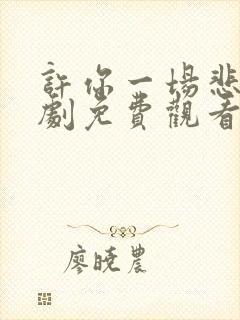 許你一場悲
劇免費觀看
廖曉農